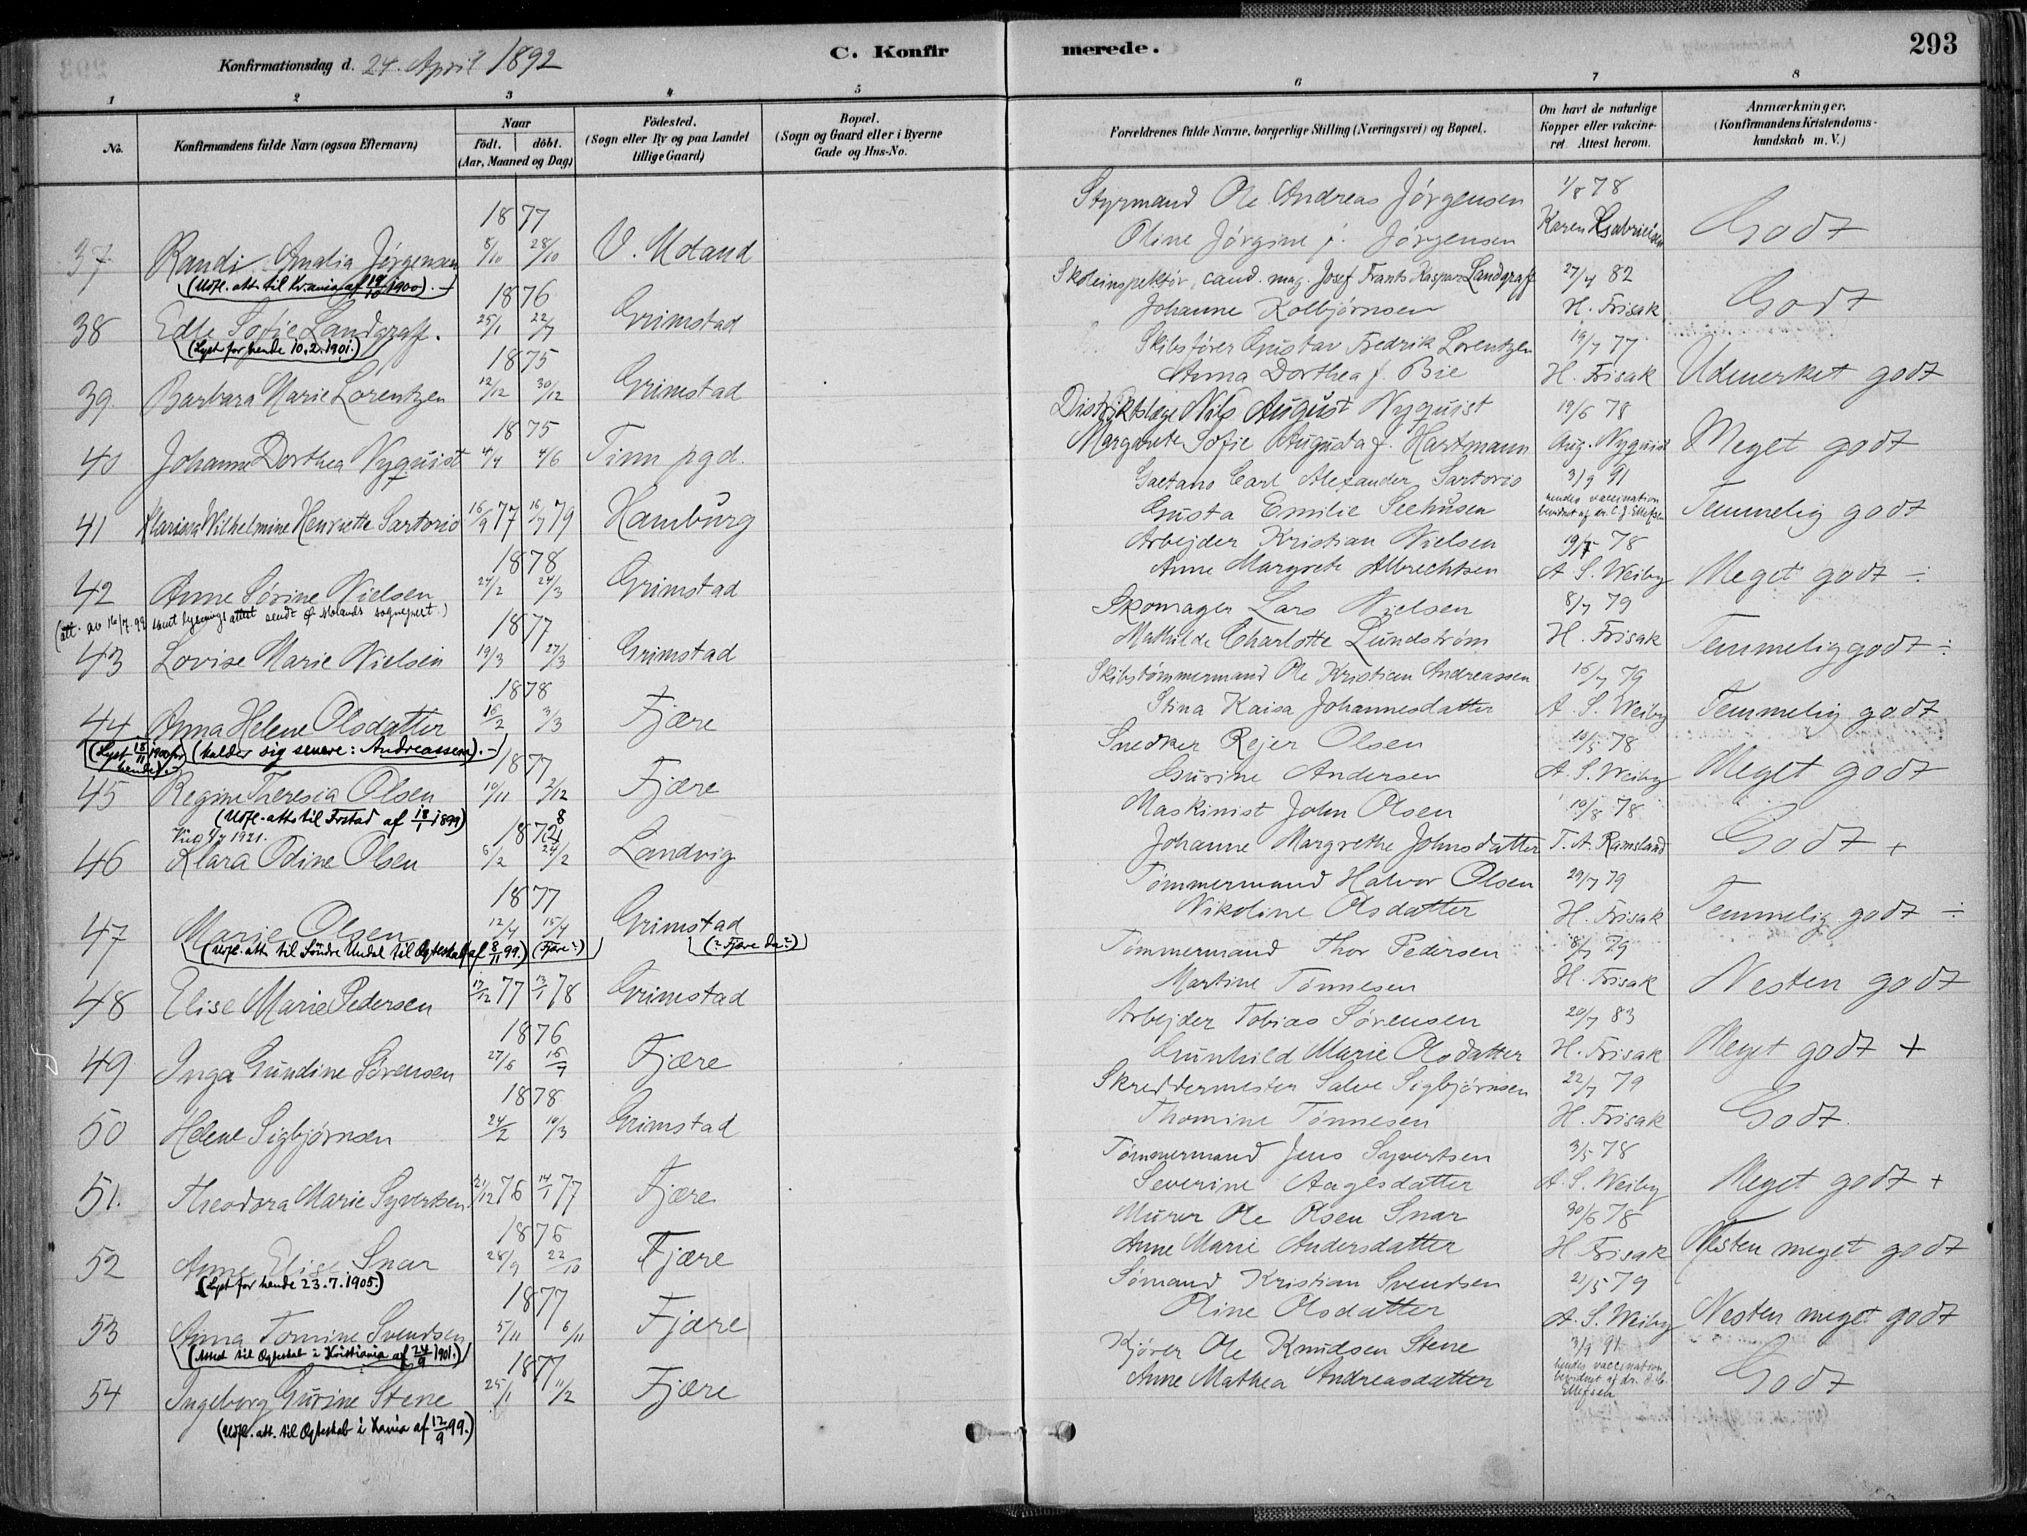 Konfirmationsdag d. 24. April 1892
C. Konfirmerede.
293
1 2 3 4 5 6 7 8
No.
Konfirmandens fulde Navn (ogsaa Efternavn)
Naar
født. døbt.
(Aar, Maaned og Dag)
Fødested.
(Sogn eller By og paa Landet
tillige Gaard)
Bopæl.
(Sogn og Gaard eller i Byerne
Gade og Hus-No.
Forældrenes fulde Navne, borgerlige Stilling (Næringsvei) og Bopæl.
Om havt de naturlige
Kopper eller vakcine-
ret. Attest herom.
Anmærkninger.
(Konfirmandens Kristendoms-
kundskab m. V.)
1877
37. Randi Amalia Jørgensen 8/10 28/10 V. Moland
(Udfl. att. til Kr.ania af 19/10 1900).-
Styrmand Ole Andreas Jørgensen 1/8 78
Oline Jørgine f. Jørgensen Karen Gabrielsen Godt
1876
38 Edle Sofie Landgraff. 25/1 22/7 Grimstad
(Lyst for hende 10.2.1901.)
Skoleinspektør, cand. mag. Josef Frants Kaspar Landgraff 27/4 82
Johanne Kolbjørnsen H. Frisak Godt
1875
39. Barbara Marie Lorentzen 12/12 30/12 Grimstad
Skibsfører Gustav Fredrik Lorentzen 19/7 77
Anna Dorthea f. Bie H. Frisak Udmerket godt
1875
40 Johanne Dorthea Nyquist 4/4 4/6 Tinn pgd.
Distriktslæge Nils August Nyquist 19/6 78
Margarete Sofie Augusta f. Hartmann Aug. Nyquist Meget godt
41 Klarissa Wilhelmine Henriette Sartorio 16/9 77 16/7 79 Hamburg
Gaetano Carl Alexander Sartorio 3/9 91
Gusta Emilie Seehusen hendes vaccination
bevidnet af dr. C. J. Ellefsen Temmelig godt
1878
42 Anne Sørine Nielsen 24/2 24/3 Grimstad
(att. av 16/7.99 samt lysningsattest sendt Ø. Molands sogneprest.)
Arbejder Kristian Nielsen 19/7 78
Anne Margrete Albrechtsen A. S. Weiby Meget godt ÷
1877
43 Lovise Marie Nielsen 19/3 27/3 Grimstad
Skomager Lars Nielsen 8/7 79
Mathilde Charlotte Lundstrøm H. Frisak Temmelig godt ÷
1878
44 Anna Helene Olsdatter 16/2 3/3 Fjære
(Lyst 18/11 1900 for hende).- (kalder sig senere: Andreassen).-
Skibstømmermand Ole Kristian Andreassen 16/7 79
Stina Kaisa Johannesdatter A. S. Weiby Temmelig godt
1877
45 Regine Theresia Olsen 10/11 2/12 Fjære
(Udfl.-atts til Frstad af 18/1 1899)
Snedker Rejer Olsen 10/5 78
Gurine Andersen A. S. Weiby Meget godt
Viet 4/7 1921. 1878
46 Klara Odine Olsen 6/2 24/2 Landvig
Maskinist John Olsen 10/8 78
Johanne Margrethe Johnsdatter T. A. Ramsland Godt +
1877
47 Marie Olsen 12/4 15/4 Grimstad
(Udfl. att. til Søndre Undal til Ægteskab af 8/11 99.) (Fjære?) (? Fjære da?)
Tømmermand Halvor Olsen 29/7 79
Nikoline Olsdatter H. Frisak Temmelig godt ÷
48 Elise Marie Pedersen 17/12 77 13/1 78 Grimstad
Tømmermand Thor Pedersen 8/7 79
Martine Tønnesen H. Frisak Nesten godt
1876
49 Inga Gundine Sørensen 27/6 16/7 Fjære
Arbejder Tobias Sørensen 20/7 83
Gunhild Marie Olsdatter H. Frisak Meget godt +
1878
50 Helene Sigbjørnsen 24/2 10/3 Grimstad
Skreddermester Salve Sigbjørnsen 22/7 79
Thomine Tønnesen H. Frisak Godt.
51. Theodora Marie Syvertsen 21/12 76 14/1 77 Fjære
Tømmermand Jens Syvertsen 3/5 78
Severine Aagesdatter A. S. Weiby Meget godt +
1876
52 Anne Elise Snar 28/9 22/10 Fjære
(Lyst for hende 23.7.1905.)
Murer Ole Olsen Snar 30/6 78
Anne Marie Andersdatter H. Frisak Nesten meget godt
1877
53 Anna Tomine Svendsen 5/11 6/11 Fjære
(Attest til Ægteskab i Kristiania af 24/9 1901.)
Sømand Kristian Svendsen 21/5 79
Oline Olsdatter A. S. Weiby Nesten meget godt
1877
54 Ingeborg Gurine Stene 25/1 11/2 Fjære
(Udfl. att. til Ægteskab i Kania af 12/9 99.)
Kjører Ole Knudsen Stene 3/9 91
Anne Mathea Andreasdatter hendes vaccination
bevidnet af dr. Ellefsen Godt